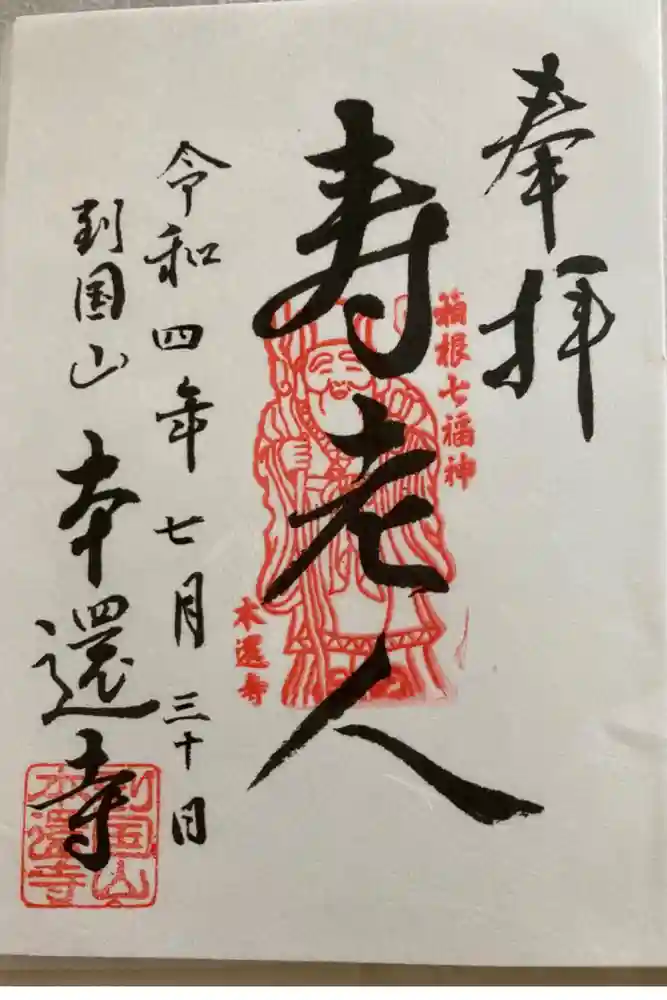 奉拝
箱根七福神
寿老人
本還寺
令和四年七月三十日
到国山 本還寺
到国山
本還寺